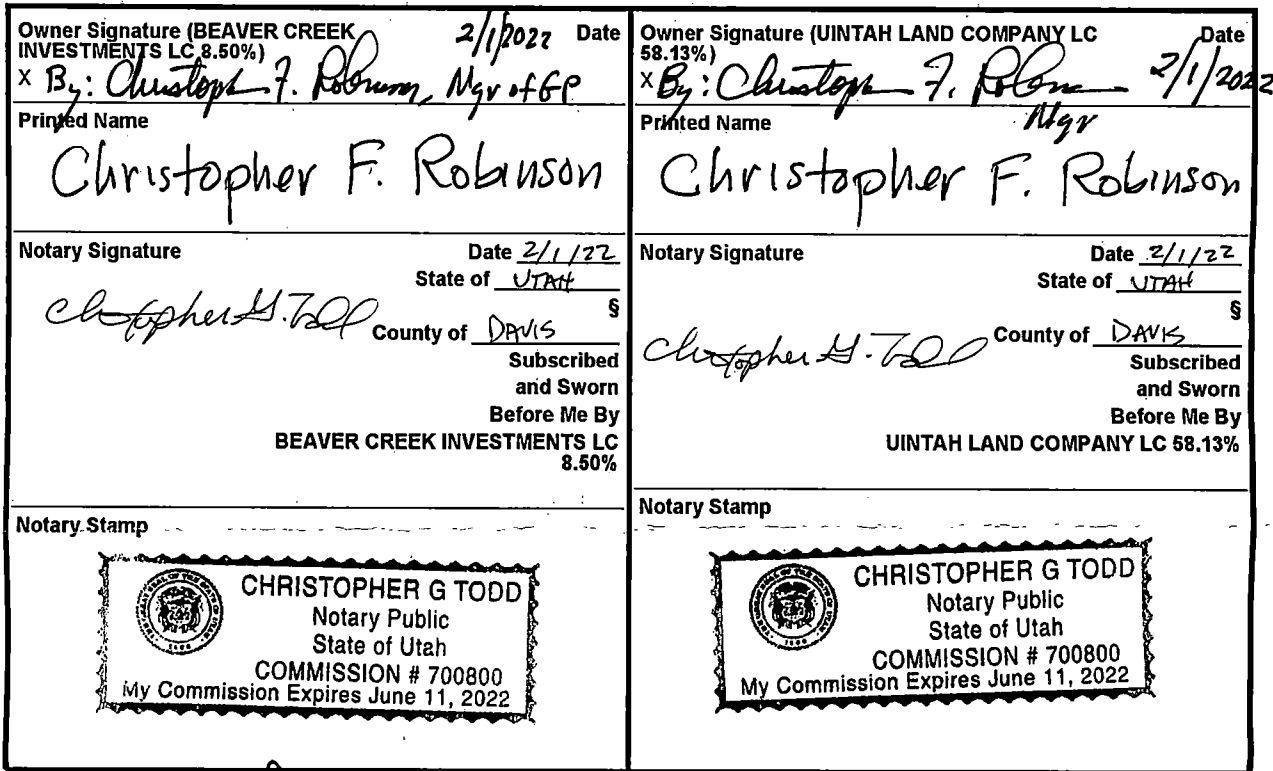 Owner Signature (BEAVER CREEK INVESTMENTS LC 8.50%) 2/1/2022 Date
X By: Christopher F. Robinson, Mgr of GP
Printed Name
Christopher F. Robinson
Notary Signature
Date 2/1/22
State of UTAH
§
Christopher G. Todd
County of DAVIS
Subscribed
and Sworn
Before Me By
BEAVER CREEK INVESTMENTS LC
8.50%
Notary Stamp
CHRISTOPHER G TODD
Notary Public
State of Utah
COMMISSION # 700800
My Commission Expires June 11, 2022
Owner Signature (UINTAH LAND COMPANY LC Date
58.13%)
X By: Christopher F. Robinson 2/1/2022
Mgr
Printed Name
Christopher F. Robinson
Notary Signature
Date 2/1/22
State of UTAH
§
Christopher G. Todd
County of DAVIS
Subscribed
and Sworn
Before Me By
UINTAH LAND COMPANY LC 58.13%
Notary Stamp
CHRISTOPHER G TODD
Notary Public
State of Utah
COMMISSION # 700800
My Commission Expires June 11, 2022